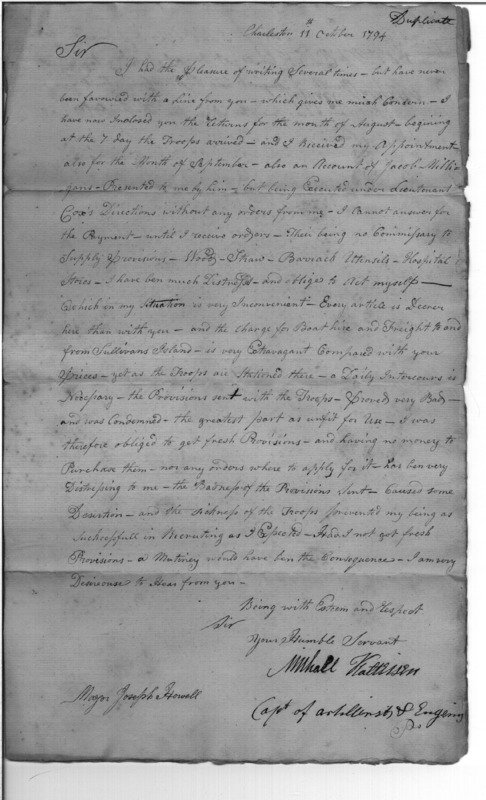 Duplicate
Charleston 11th October 1794
Sir
I had the Pleasure of writing Several times - but have never
been favoured with a Line from you - which gives me much Concern - I
have now Inclosed you the Returns for the month of August - begining
at the 7 day the Troops arrived - and I Received my Appointment
also for the Month of September - also an Account of Jacob Milli
gans - Presented to me by him - but being Executed under Lieutenant
Cox's Directions without any orders from me - I Cannot answer for
the Payment - until I receive orders - Their being no Commissary to
Supply Provisions - Wood - Straw - Barrack Utensils - Hospital
Stores - I have ben much Distressed - and obliged to Act myself -
Which in my Situation is very Inconvenient - Every article is Dearer
here than with you - and the Charge for Boat hire and Freight to and
from Sullivans Island - is very Extravagant Compared with your
Prices - yet as the Troops are Stationed there - a Daily Intercours is
Necessary - the Provisions sent with the Troops - Proved very Bad -
and was Condemned - the greatest part as unfit for Use - I was
therefore obliged to get fresh Provisions - and having no money to
Purchase them - nor any orders where to apply for it - has ben very
Distressing to me - the Badness of the Provisions Sent - Caused some
Desertion - and the Sickness of the Troops prevented my being as
Successfull in Recruiting as I Expected - Had I not got fresh
Provisions - a Mutiney would have ben the Consequence - I am very
Desireouse to Hear from you -
Being with Esteem and Respect
Sir
Your Humble Servant
Michall Kalteisen
Capt of artillirists &
Major Joseph Howell